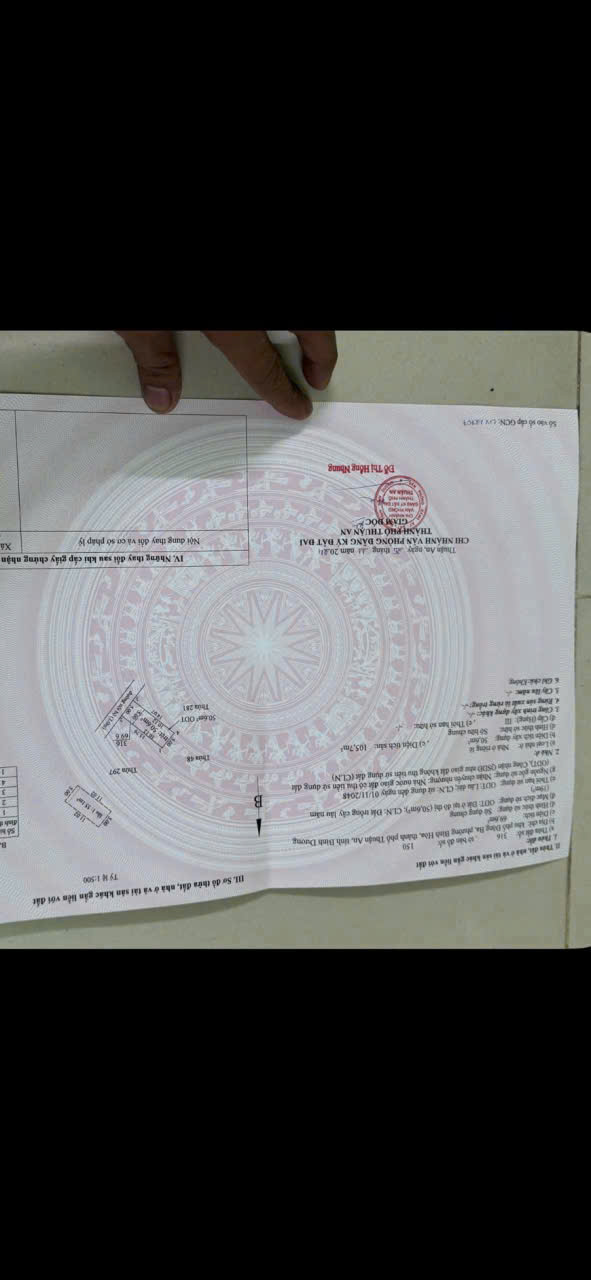 II. Thửa đất, nhà ở và tài sản khác gắn liền với đất
1. Thửa đất:
a) Thửa đất số: 316 , tờ bản đồ số: 150
b) Địa chỉ: khu phố Đông Ba, phường Bình Hòa, thành phố Thuận An, tỉnh Bình Dương
c) Diện tích: 69.6m²
d) Hình thức sử dụng: Sử dụng chung
đ) Mục đích sử dụng: ODT: Đất ở tại đô thị (50,6m²); CLN: Đất trồng cây lâu năm
(19m²)
e) Thời hạn sử dụng: ODT: Lâu dài; CLN: sử dụng đến ngày 01/11/2048
g) Nguồn gốc sử dụng: Nhận chuyển nhượng; Nhà nước giao đất có thu tiền sử dụng đất
(ODT), Công nhận QSDĐ như giao đất không thu tiền sử dụng đất (CLN)
2. Nhà ở:
a) Loại nhà ở: Nhà ở riêng lẻ
b) Diện tích xây dựng: 50,6m² , c) Diện tích sàn: 105,7m²
d) Hình thức sở hữu: Sở hữu chung
đ) Cấp (Hạng): III , e) Thời hạn sở hữu: -/-
3. Công trình xây dựng khác: -/-
4. Rừng sản xuất là rừng trồng: -/-
5. Cây lâu năm: -/-
6. Ghi chú: Không
Thuận An, ngày tháng năm
CHI NHÁNH VĂN PHÒNG ĐĂNG KÝ ĐẤT ĐAI
THÀNH PHỐ THUẬN AN
GIÁM ĐỐC
CHI NHÁNH
VĂN PHÒNG
ĐĂNG KÝ ĐẤT ĐAI
THÀNH PHỐ
THUẬN AN
Đỗ Thị Hồng Nhung
Số vào sổ cấp GCN:
III. Sơ đồ thửa đất, nhà ở và tài sản khác gắn liền với đất
Tỷ lệ 1:500
B
Thửa 48
Thửa 297
316
69.6
50.6m² ODT
Thửa 281
IV. Những thay đổi sau khi cấp giấy chứng nhận
Nội dung thay đổi và cơ sở pháp lý
Số hiệu
1
2
3
4
1